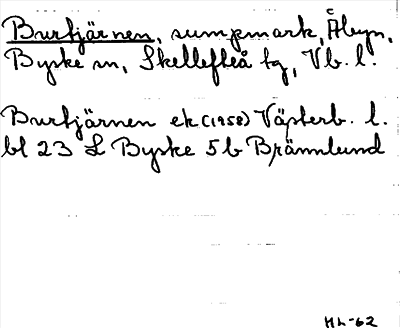 Burtjärnen, sumpmark, Åbyn,
Byske sn, Skellefteå tg, Vb. l.
Burtjärnen ek (1958) Västerb. l.
bl 23 L Byske 5b Brännlund
HL-62